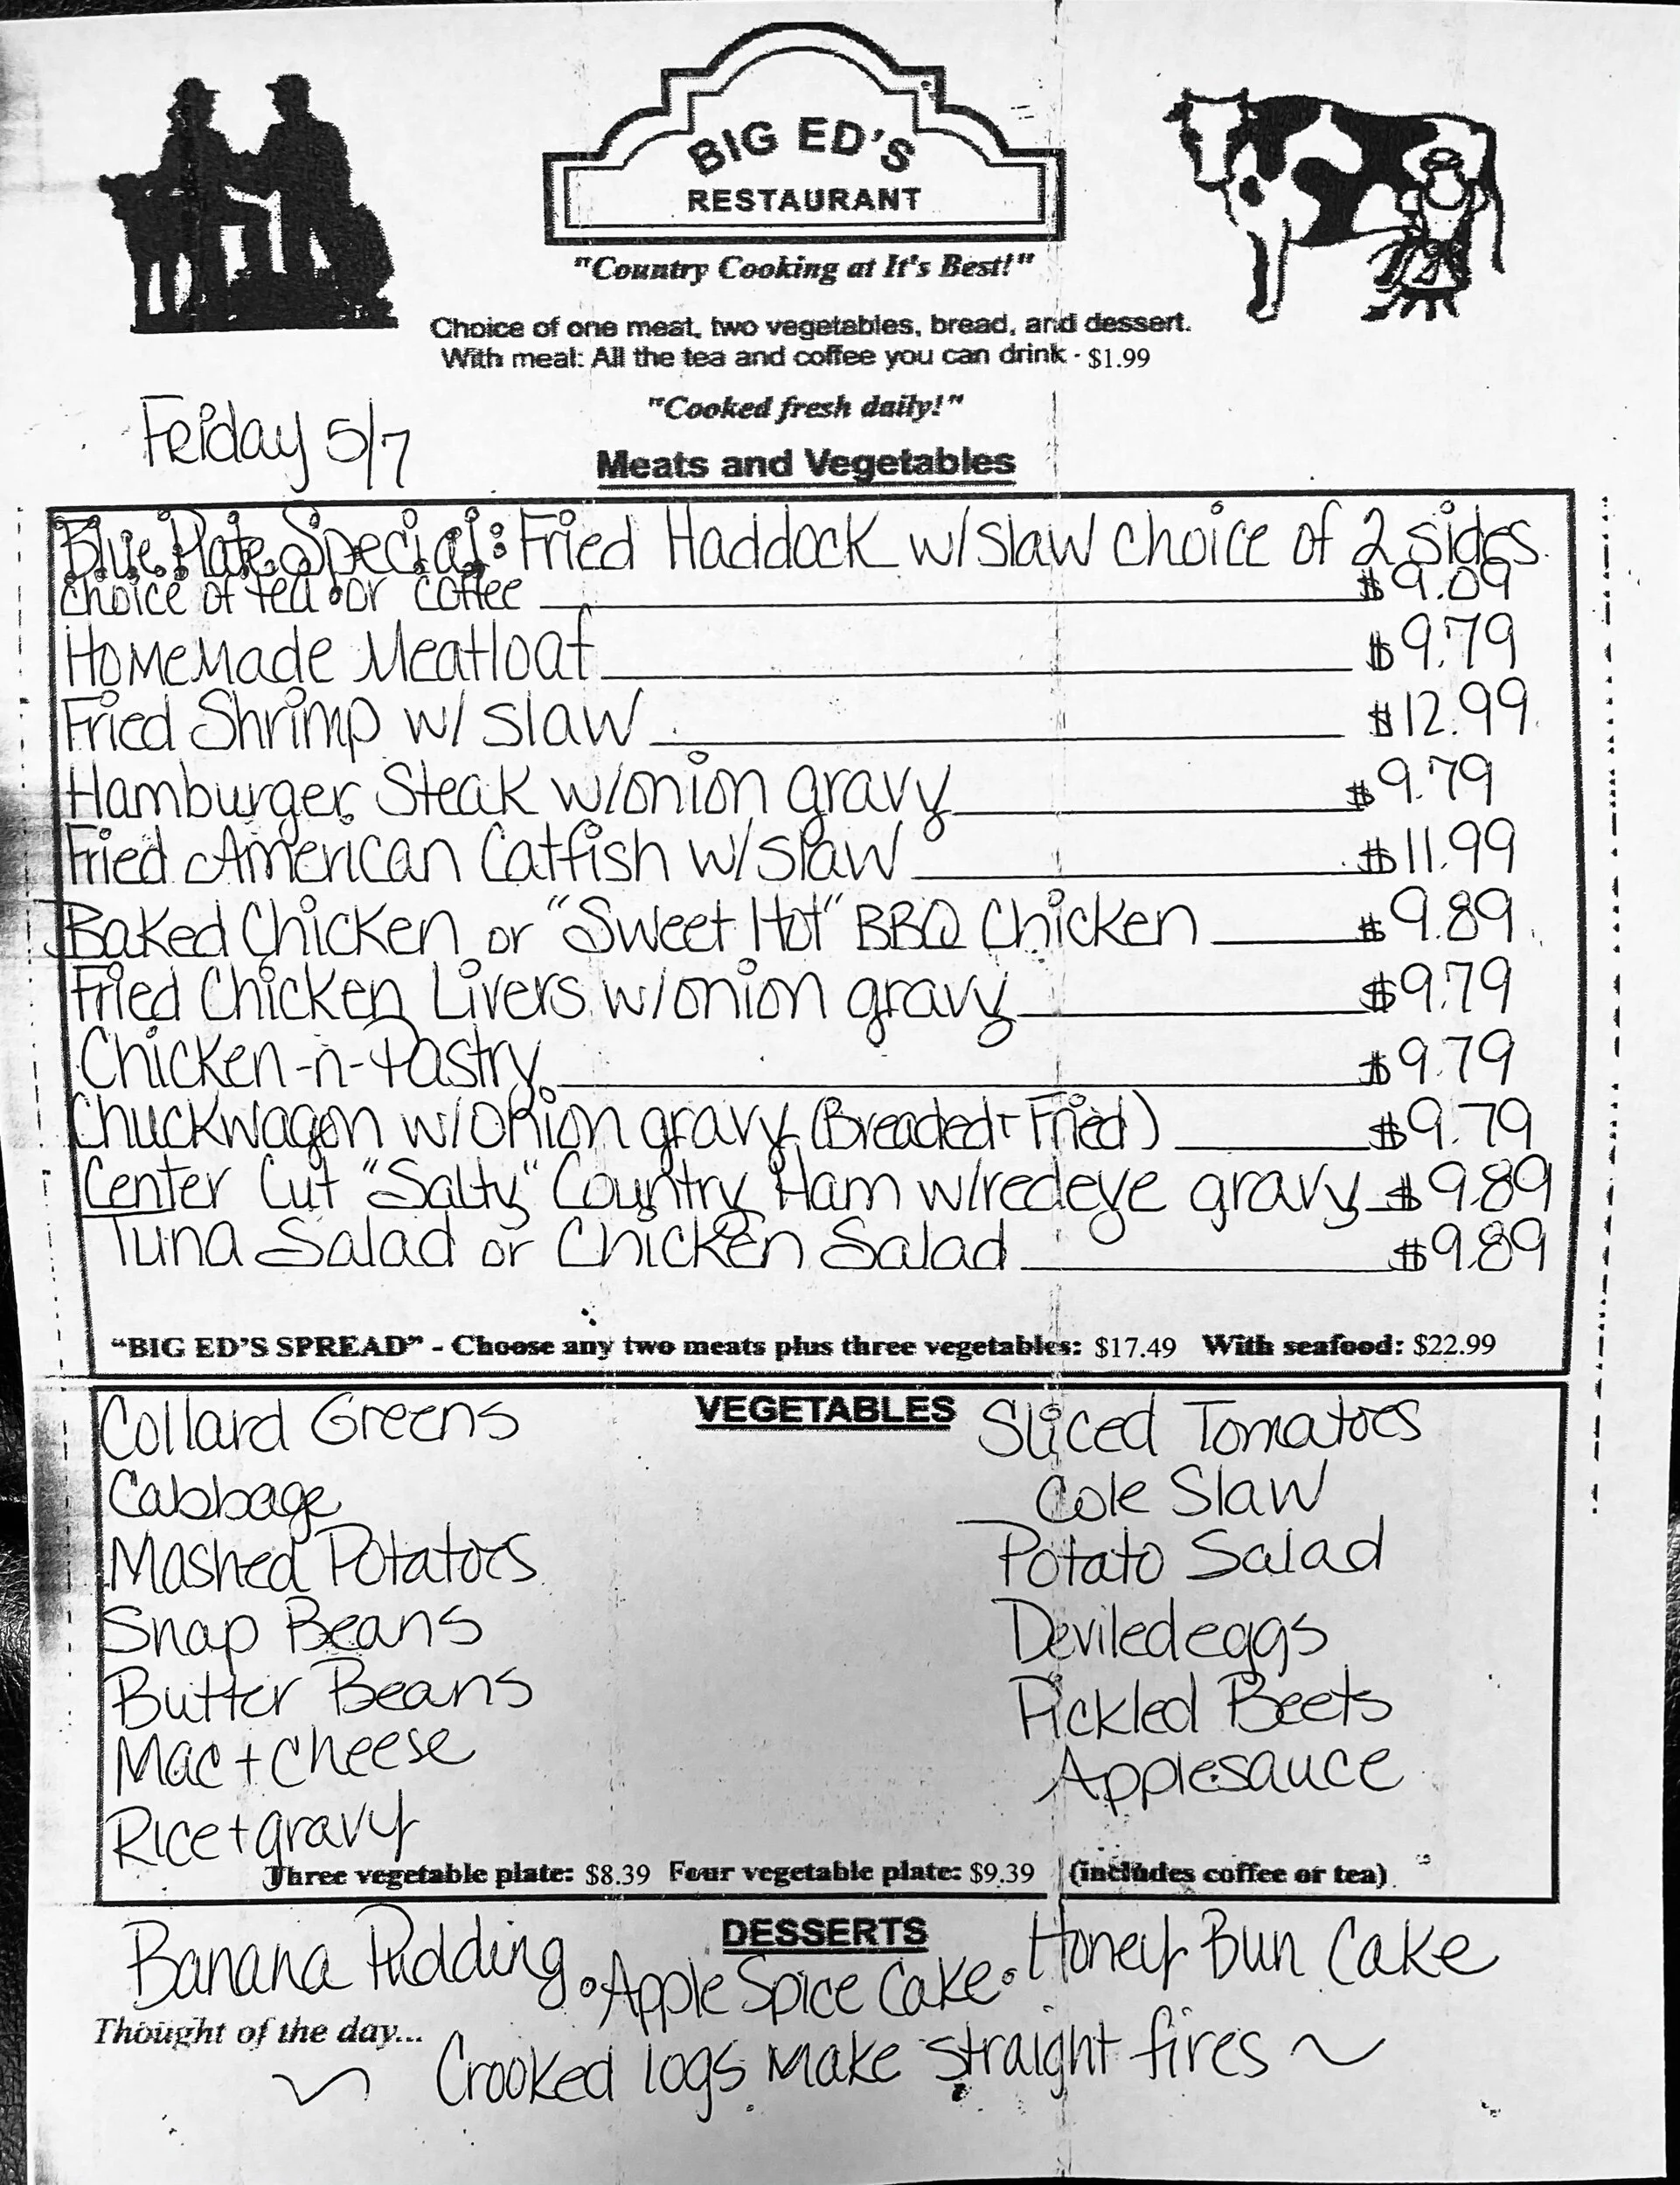 BIG ED'S
RESTAURANT
"Country Cooking at It's Best!"
Choice of one meat, two vegetables, bread, and dessert.
With meal: All the tea and coffee you can drink - $1.99
"Cooked fresh daily!"
Friday 5/7
Meats and Vegetables
Blue Plate Special: Fried Haddock w/slaw choice of 2 sides
choice of tea or coffee $9.09
Homemade Meatloaf $9.79
Fried Shrimp w/ slaw $12.99
Hamburger Steak w/onion gravy $9.79
Fried American Catfish w/slaw $11.99
Baked Chicken or "Sweet Hot" BBQ Chicken $9.89
Fried Chicken Livers w/onion gravy $9.79
Chicken-n-Pastry $9.79
Chuckwagon w/onion gravy (Breaded + Fried) $9.79
Center Cut "Salty" Country Ham w/redeye gravy $9.89
Tuna Salad or Chicken Salad $9.89
"BIG ED'S SPREAD" - Choose any two meats plus three vegetables: $17.49 With seafood: $22.99
VEGETABLES
Collard Greens
Cabbage
Mashed Potatoes
Snap Beans
Butter Beans
Mac + cheese
Rice + gravy
Sliced Tomatoes
Cole Slaw
Potato Salad
Deviled eggs
Pickled Beets
Applesauce
Three vegetable plate: $8.39 Four vegetable plate: $9.39 (includes coffee or tea)
DESSERTS
Banana Pudding • Apple Spice Cake • Honey Bun Cake
Thought of the day...
~ Crooked logs make straight fires ~